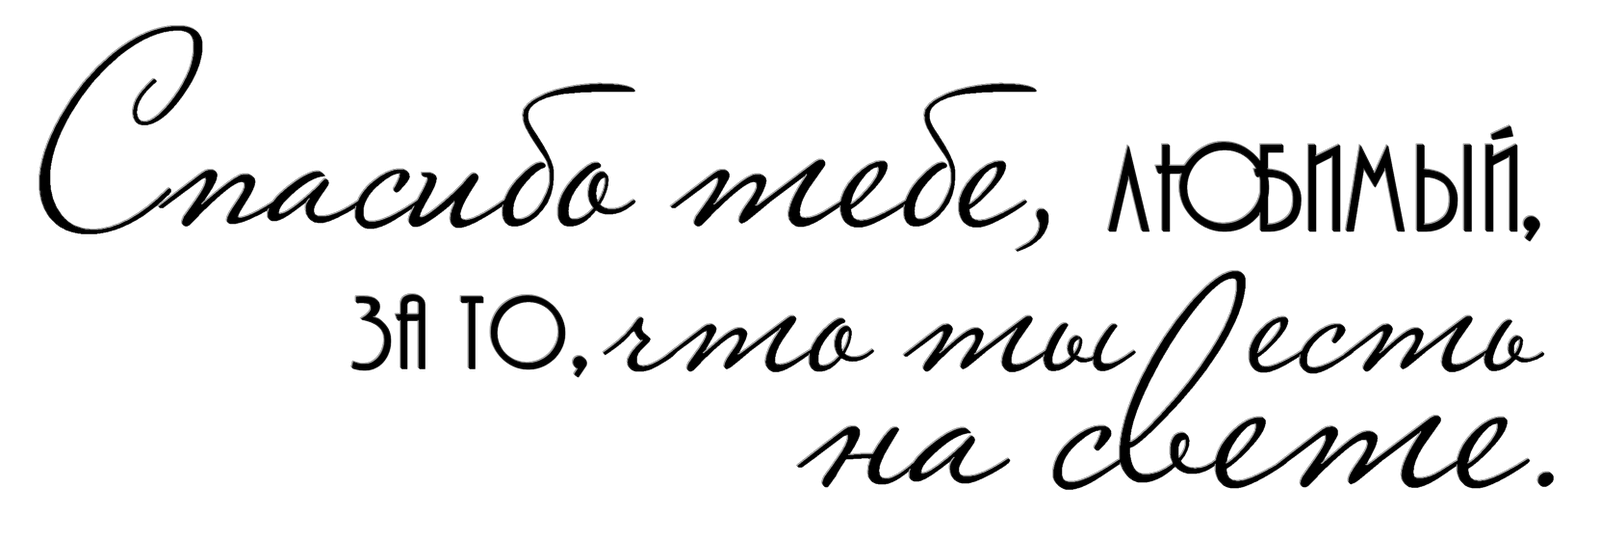 Спасибо тебе, ЛЮБИМЫЙ,
ЗА ТО, что ты есть
на свете.